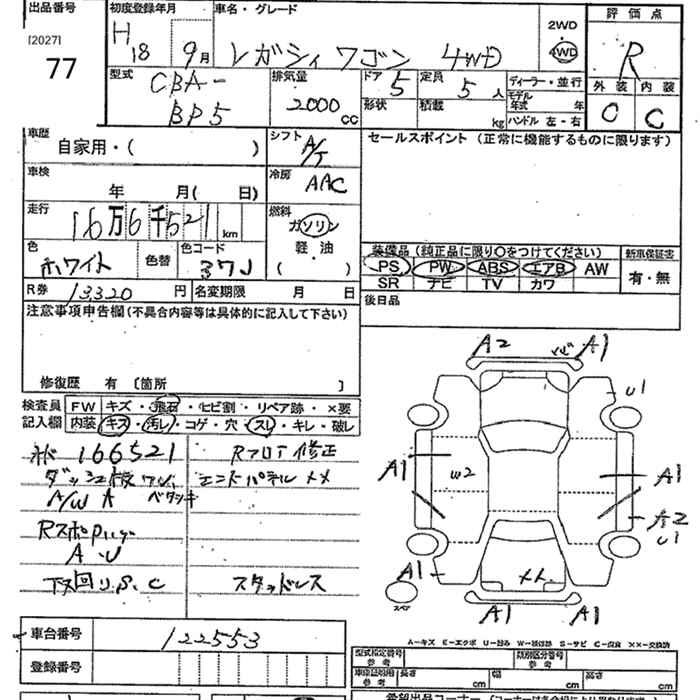 出品番号
[2027]
77
初度登録年月
H18 9月
車名・グレード
レガシィワゴン 4WD
2WD
4WD
評価点
R
型式
CBA-
BP5
排気量
2000 cc
ドア
5
定員
5人
形状
積載 kg
ディーラー・並行
モデル年式 年
ハンドル 左・右
外装
C
内装
C
車歴
自家用・( )
シフト
A/T
セールスポイント (正常に機能するものに限ります)
車検
年 月( 日)
冷房
AAC
走行
16万6千521 km
燃料
ガソリン
軽・油
( )
色
ホワイト
色替
色コード
37J
装備品 (純正品に限り○をつけてください)
PS PW ABS エアB AW
SR ナビ TV カワ
新車保証書
有・無
R券
13320 円
名変期限 月 日
後日品
注意事項申告欄 (不具合内容等は具体的に記入して下さい)
修復歴 有 〔箇所 〕
検査員
記入欄
FW キズ・飛石・ヒビ割・リペア跡・×要
内装 キズ・汚レ・コゲ・穴・スレ・キレ・破レ
166521
Rフロア修正
エンドパネルメメ
A/W A
A・U
下回りS、C
スタッドレス
A2
A1
U1
A1
W2
A1
A2
U1
A1
スペア
A1
A1
車台番号
122553
登録番号
A-キズ E-エクボ U-凹み S-サビ C-腐食 XX-交換済
型式指定番号
参考
類別区分番号
参考
参考
長さ cm
幅 cm
高さ cm